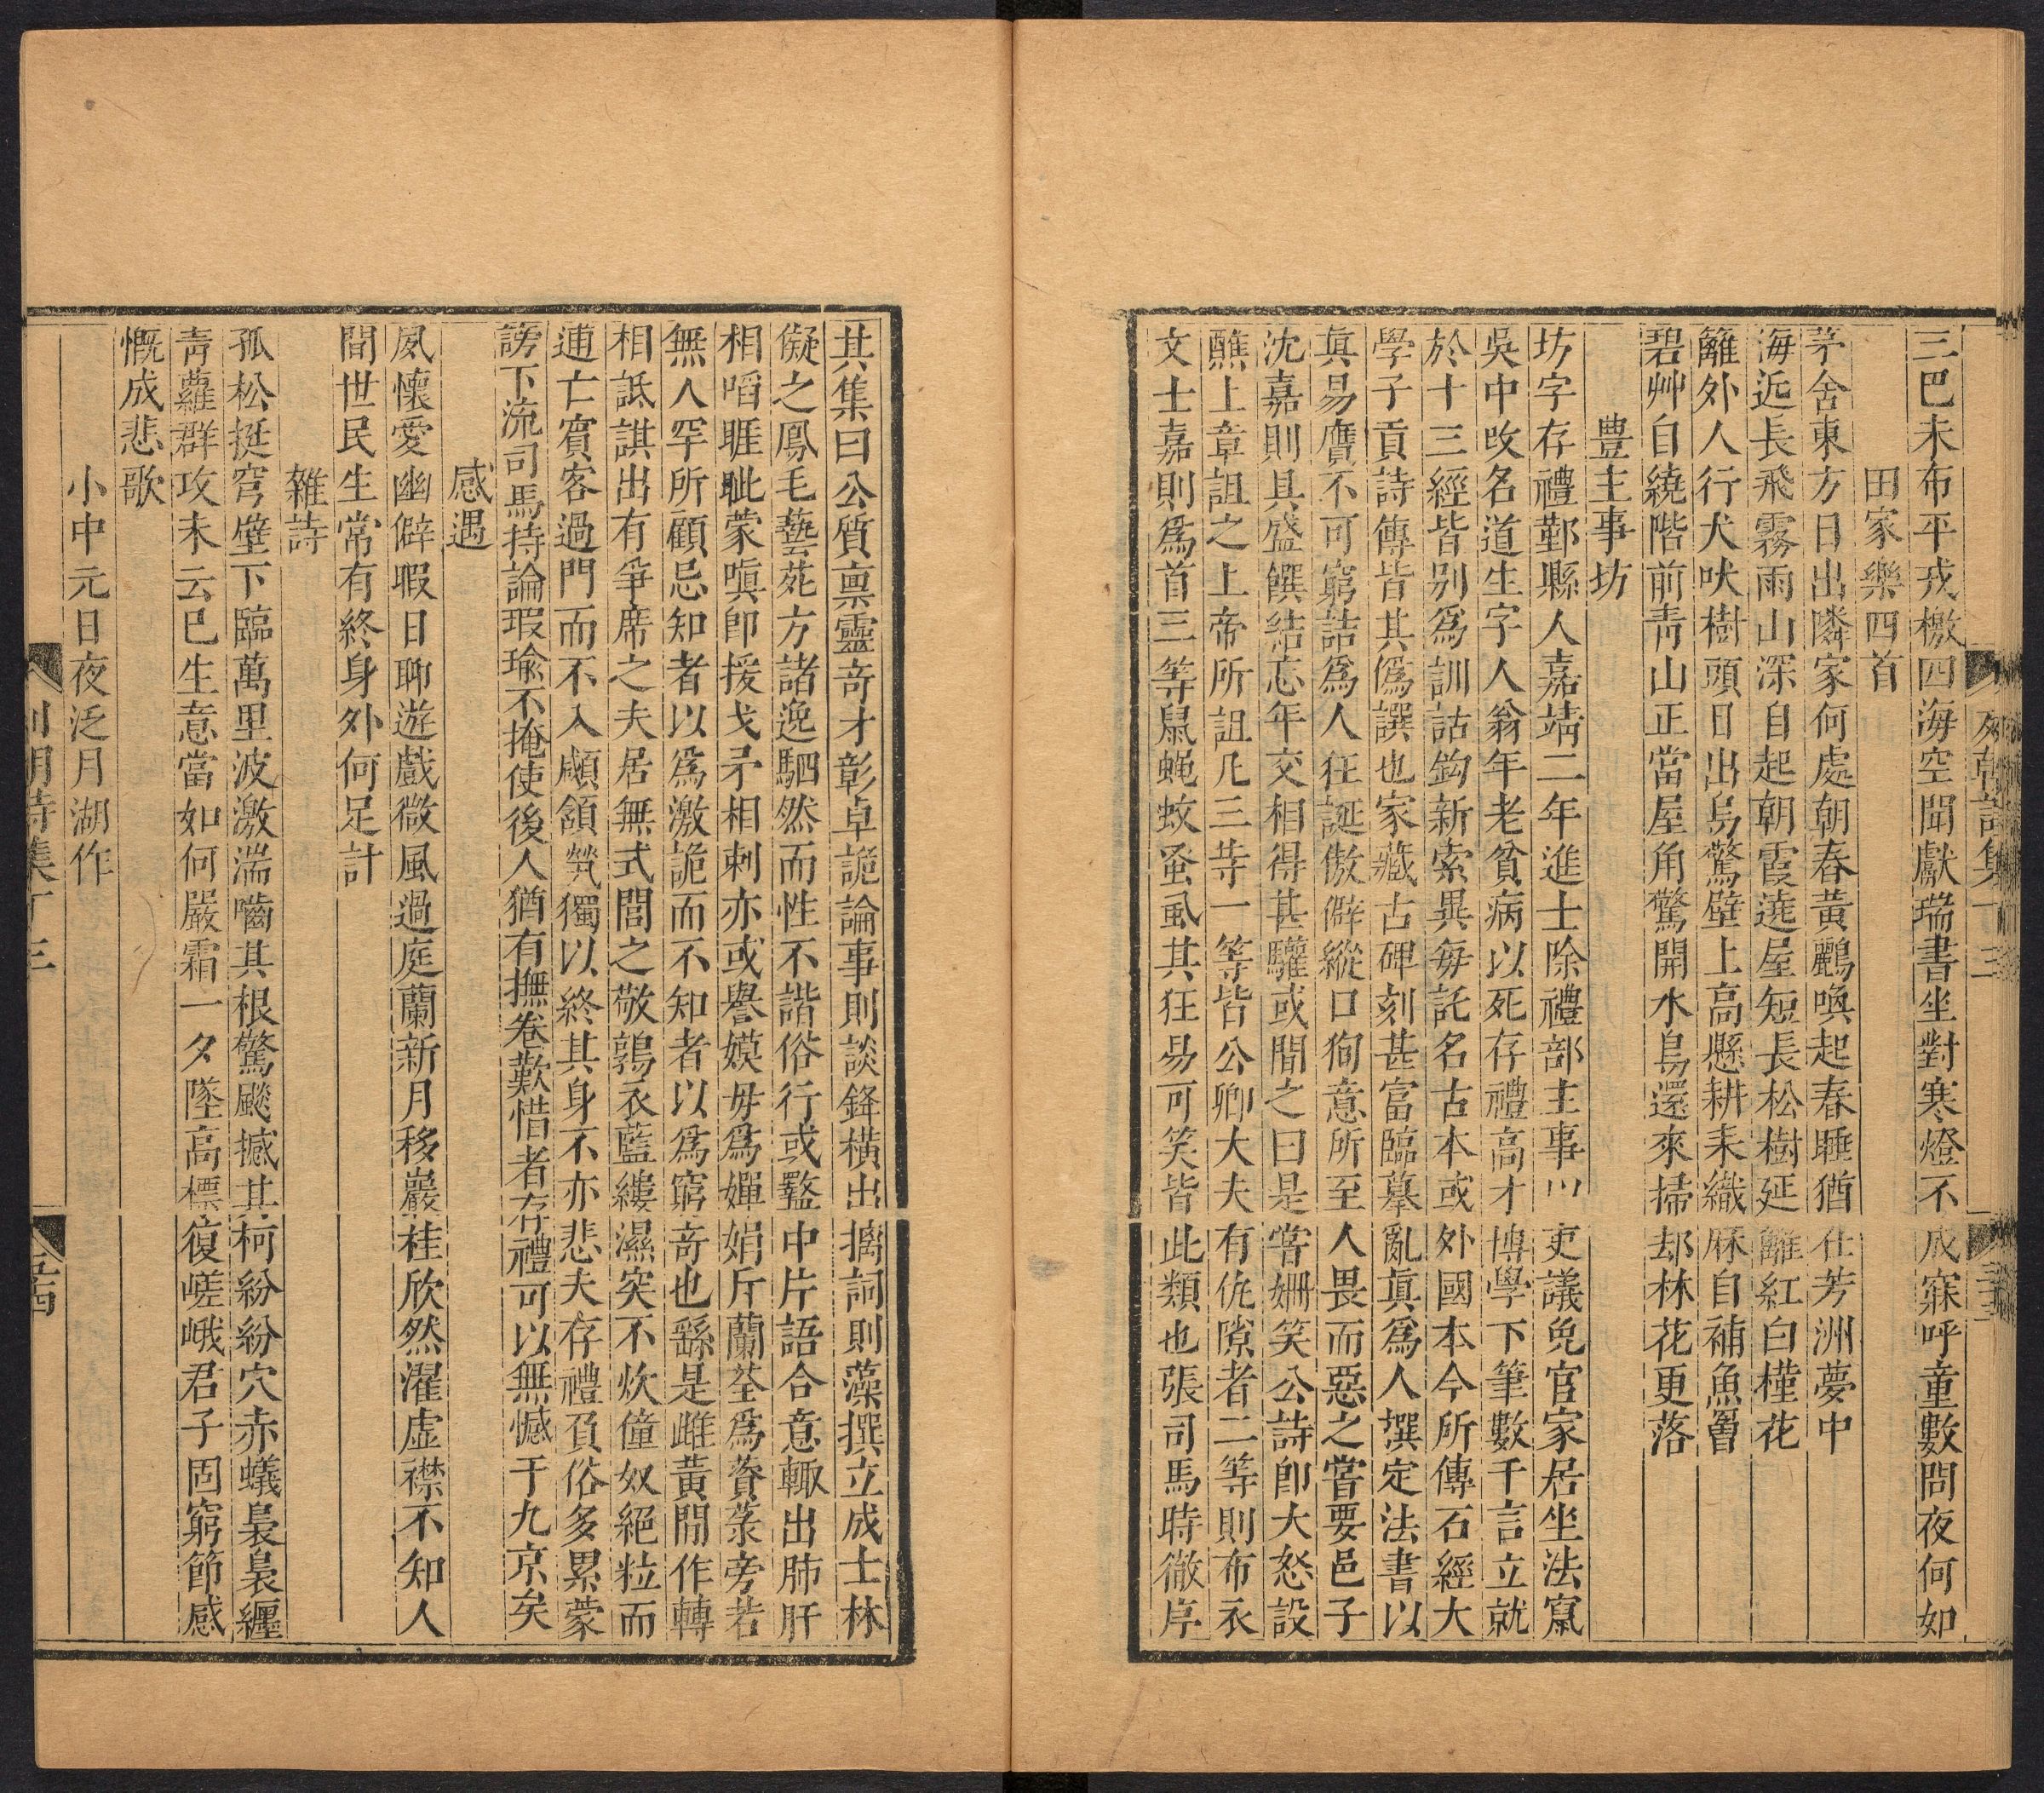 三巴未布平戎檄四海空聞獻瑞書坐對寒燈不成寐呼童數問夜何如
田家樂四首
茅舍東方日出隣家何處朝舂黃鸝喚起春睡猶在芳洲夢中
海近長飛霧雨山深自起朝霞遶屋短長松樹延籬紅白槿花
籬外人行犬吠樹頭日出鳥驚壁上高懸耕耒織厤自補魚罾
碧艸自繞階前靑山正當屋角驚開水鳥還來掃却林花更落
豐主事坊
坊字存禮鄞縣人嘉靖二年進士除禮部主事以吏議免官家居坐法竄
吳中改名道生字人翁年老貧病以死存禮高才博學下筆數千言立就
於十三經皆别爲訓詁鈎新索異每託名古本或外國本今所傳石經大
學子貢詩傳皆其僞譔也家藏古碑刻甚富臨摹亂眞爲人撰定法書以
眞易贋不可窮詰爲人狂誕傲僻縱口狥意所至人畏而惡之嘗要邑子
沈嘉則具盛饌結忘年交相得甚驩或閒之曰是嘗姍笑公詩卽大怒設
醮上章詛之上帝所詛凡三等一等皆公卿大夫有仇隙者二等則布衣
文士嘉則爲首三等鼠蝇蚊蚤虱其狂易可笑皆此類也張司馬時徹序
其集曰公質禀靈奇才彰卓詭論事則談鋒橫出摛詞則藻撰立成士林
儗之鳳毛藝苑方諸逸駟然而性不諧俗行或盭中片語合意輙出肺肝
相啗睚眦蒙嗔卽援戈矛相刺亦或譽嫫毋爲嬋娟斥蘭荃爲薋菉旁若
無人罕所顧忌知者以爲激詭而不知者以爲窮奇也繇是雌黃閒作轉
相詆諆出有爭席之夫居無式閭之敬鶉衣藍縷濕突不炊僮奴絕粒而
逋亡賓客過門而不入顑頷煢獨以終其身不亦悲夫存禮負俗多累蒙
謗下流司馬持論瑕瑜不掩使後人猶有撫卷歎惜者存禮可以無憾于九京矣
感遇
夙懷愛幽僻暇日聊遊戲微風過庭蘭新月移巖桂欣然濯虛襟不知人
間世民生常有終身外何足計
雜詩
孤松挺穹壁下臨萬里波激湍嚙其根驚飈撼其柯紛紛穴赤蟻裊裊纒
靑蘿群攻未云已生意當如何嚴霜一夕墜高標復嵯峨君子固窮節感
慨成悲歌
小中元日夜泛月湖作